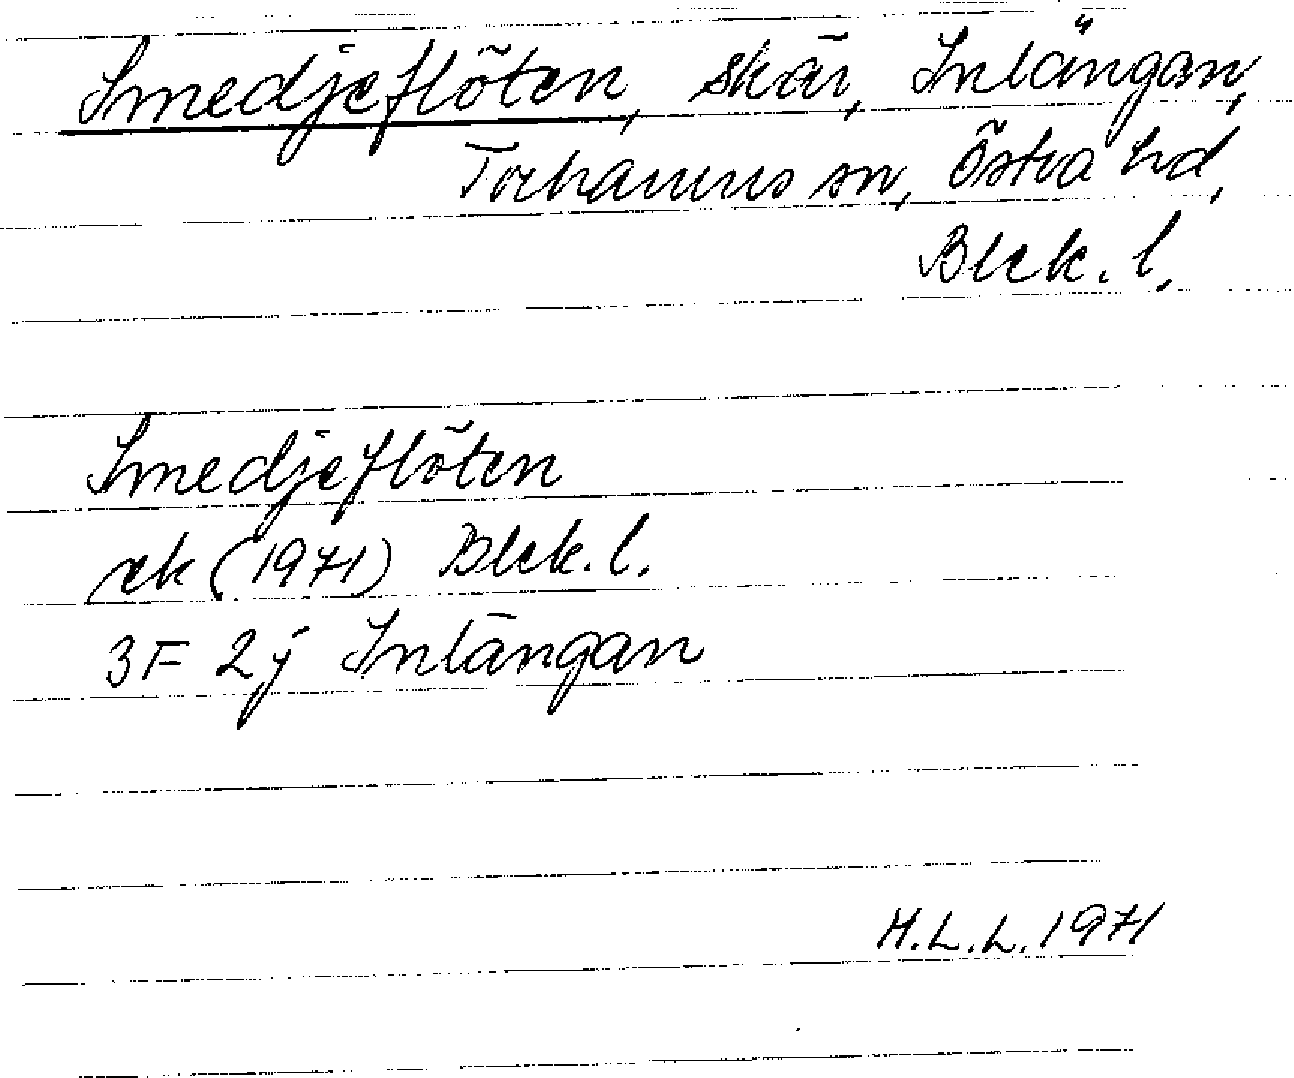 Smedjeflöten, skär, Inlängan,
Torhamns sn, Östra hd,
Blek. l.
Smedjeflöten
ek (1971) Blek. l.
3F 2j Inlängan
H.L.L. 1971